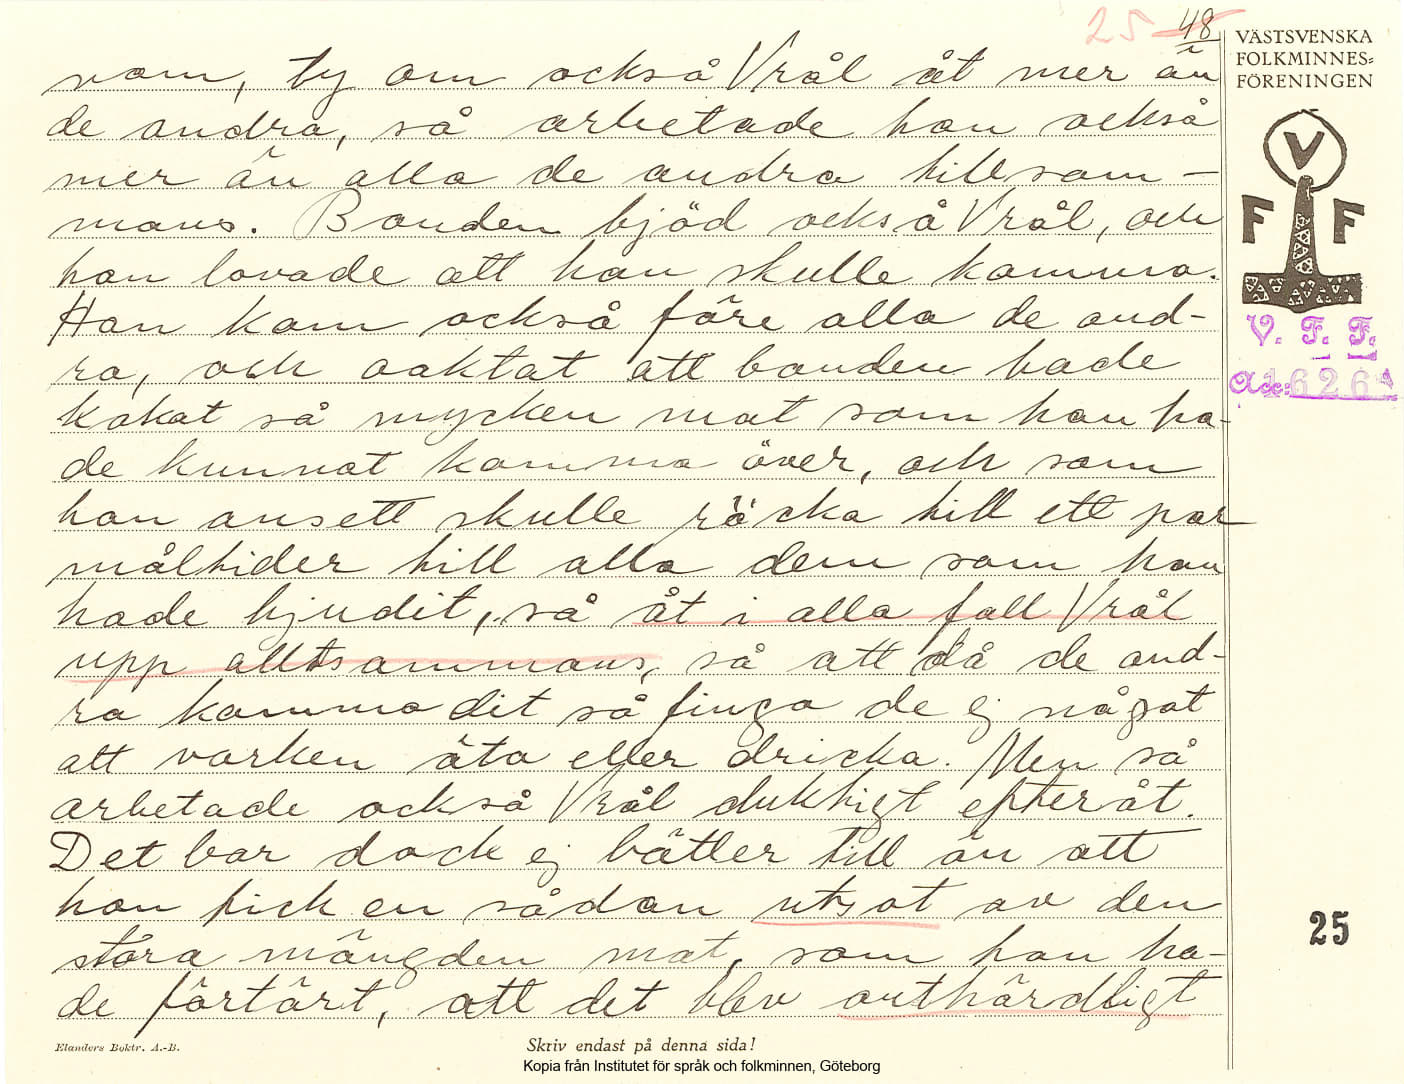 25 48
VÄSTSVENSKA
FOLKMINNES=
FÖRENINGEN
V
F F
V. F. F.
Acc: 1626
vom, ty om också Vrål åt mer än
de andra, så arbetade han också
mer än alla de andra tillsam-
mans. Bonden bjöd också Vrål, och
han lovade att han skulle komma.
Han kom också före alla de and-
ra, och oaktat att bonden hade
kokat så mycken mat som han ha-
de kunnat komma över, och som
han ansett skulle räcka till ett par
måltider till alla dem som han
hade bjudit, så åt i alla fall Vrål
upp alltsammans, så att då de and-
ra kommo dit så fingo de ej något
att varken äta eller dricka. Men så
arbetade också Vrål duktigt efteråt.
Det bar dock ej bätter till än att
han fick en sådan utsot av den
stora mängden mat, som han ha-
de förtärt, att det blev outhärdligt
25
Elanders Boktr. A.-B.
Skriv endast på denna sida!
Kopia från Institutet för språk och folkminnen, Göteborg